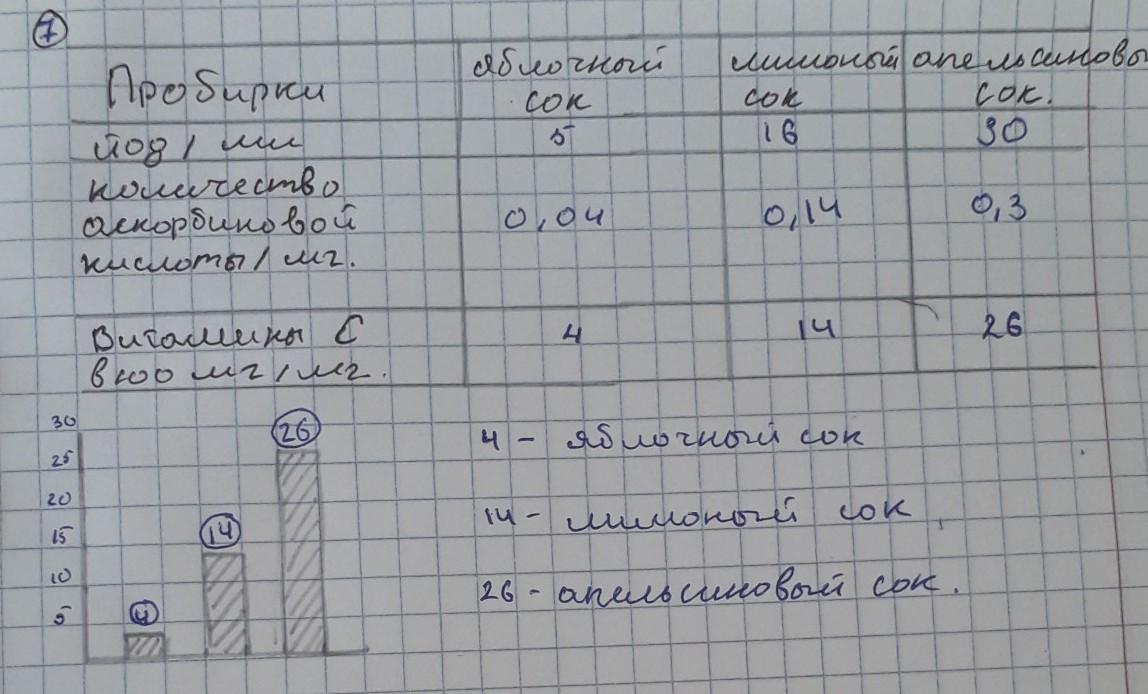 7
Пробирки яблочный лимоный апельсиновы
сок сок сок.
йод / мл 5 16 30
количество
аскорбиновой 0,04 0,14 0,3
кислоты / мг.
Витамины С 4 14 26
в 100 мг / мг.
30
26
4 - яблочный сок
25
20
14 - лимоный сок
15
14
10
26 - апельсиновый сок.
5
4